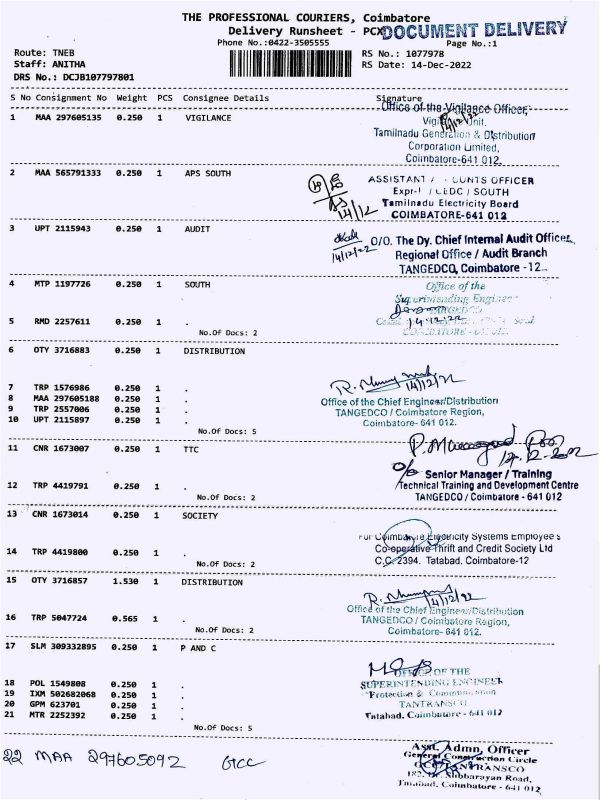 THE PROFESSIONAL COURIERS, Coimbatore
Delivery Runsheet - PCX
DOCUMENT DELIVERY
Phone No.:0422-3505555
Page No.:1
Route: TNEB
RS No.: 1077978
Staff: ANITHA
RS Date: 14-Dec-2022
DRS No.: DCJB107797801
S No Consignment No Weight PCS Consignee Details Signature
1 MAA 297605135 0.250 1 VIGILANCE
Office of the Vigilance Officer,
Unit.
14/12/22
Tamilnadu Generation & Distribution
Corporation Limited,
Coimbatore-641 012.
2 MAA 565791333 0.250 1 APS SOUTH
ASSISTANT OFFICER
SOUTH
Tamilnadu Electricity Board
14/12
COIMBATORE-641 012
3 UPT 2115943 0.250 1 AUDIT
O/O. The Dy. Chief Internal Audit Officer,
14/12/22
Regional Office / Audit Branch
TANGEDCO, Coimbatore -12
4 MTP 1197726 0.250 1 SOUTH
Office of the
Superintending Engineer
TANGEDCO
5 RMD 2257611 0.250 1 .
14.12.22
No.Of Docs: 2
6 OTY 3716883 0.250 1 DISTRIBUTION
7 TRP 1576986 0.250 1 .
14/12/22
8 MAA 297605188 0.250 1 .
Office of the Chief Engineer/Distribution
9 TRP 2557006 0.250 1 .
TANGEDCO / Coimbatore Region,
10 UPT 2115897 0.250 1 .
Coimbatore- 641 012.
No.Of Docs: 5
11 CNR 1673007 0.250 1 TTC
O/o Senior Manager / Training
12 TRP 4419791 0.250 1 .
Technical Training and Development Centre
No.Of Docs: 2
TANGEDCO / Coimbatore - 641 012
13 CNR 1673014 0.250 1 SOCIETY
For Coimbatore Electricity Systems Employee's
14 TRP 4419800 0.250 1 .
Co-operative Thrift and Credit Society Ltd
No.Of Docs: 2
C.C. 2394. Tatabad, Coimbatore-12
15 OTY 3716857 1.530 1 DISTRIBUTION
14/12/22
Office of the Chief Engineer/Distribution
16 TRP 5047724 0.565 1 .
TANGEDCO / Coimbatore Region,
No.Of Docs: 2
Coimbatore- 641 012.
17 SLM 309332895 0.250 1 P AND C
OFFICE OF THE
18 POL 1549808 0.250 1 .
SUPERINTENDING ENGINEER
19 IXM 502682068 0.250 1 .
Protection & Communication
20 GPM 623701 0.250 1 .
TANTRANSCO
21 MTR 2252392 0.250 1 .
Tatabad, Coimbatore - 641 012
No.Of Docs: 5
22 MAA 297605092 GCC
Asst. Admn, Officer
General Construction Circle
TANTRANSCO
182, Dr. Subbarayan Road,
Tatabad, Coimbatore - 641 012